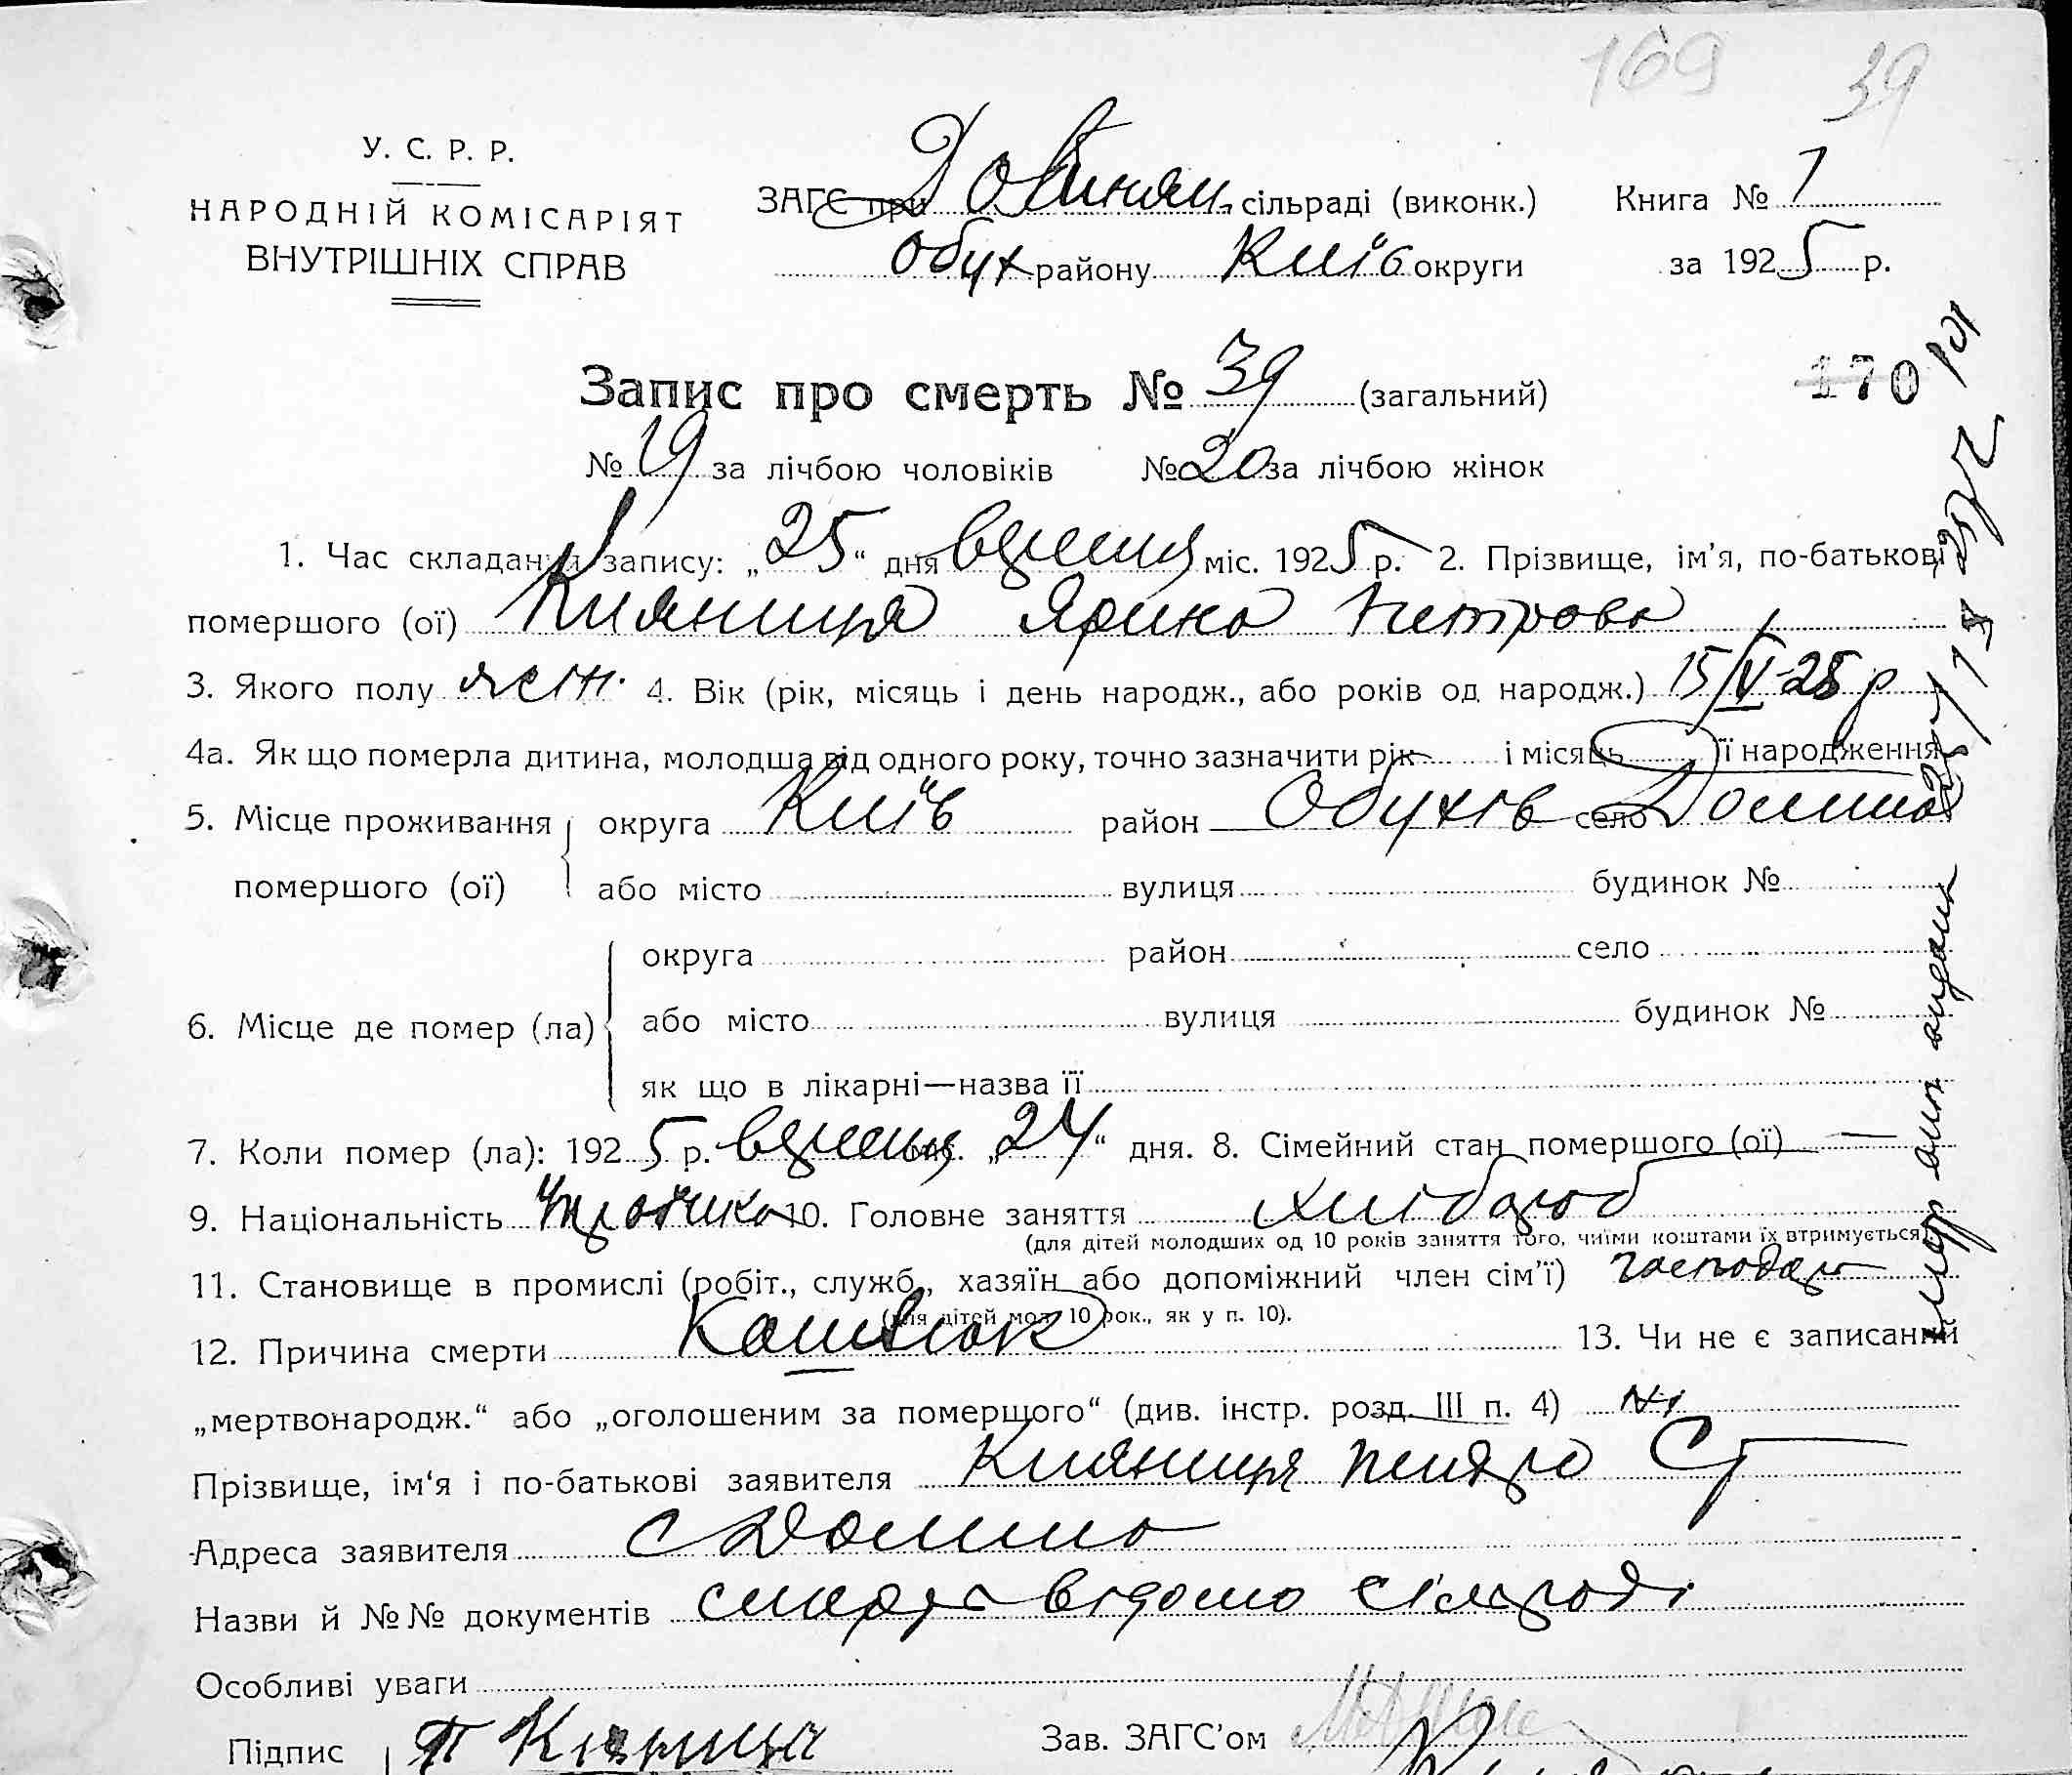 169 39
У. С. Р. Р.
НАРОДНІЙ КОМІСАРІЯТ
ВНУТРІШНІХ СПРАВ
ЗАГС при Долинян. сільраді (виконк.) Книга № 1
Обух району Київ округи за 1925 р.
Запис про смерть № 39 (загальний)
170
№ 19 за лічбою чоловіків № 20 за лічбою жінок
1. Час складання запису: „25“ дня вересня міс. 1925 р. 2. Прізвище, ім’я, по-батькові
помершого (ої) Кияниця Ярина Петрова
3. Якого полу жін. 4. Вік (рік, місяць і день народж., або років од народж.) 15/V-25 р
4а. Як що померла дитина, молодша від одного року, точно зазначити рік і місяць її народження
5. Місце проживання округа Київ район Обухів село Долина
помершого (ої) або місто вулиця будинок №
округа район село
6. Місце де помер (ла) або місто вулиця будинок №
як що в лікарні—назва її
7. Коли помер (ла): 1925 р. вересня міс. „24“ дня. 8. Сімейний стан помершого (ої) —
9. Національність Українка 10. Головне заняття хлібороб
(для дітей молодших од 10 років заняття того, чиїми коштами їх втримується).
11. Становище в промислі (робіт., служб., хазяїн або допоміжний член сім’ї) господар
(для дітей мол. 10 рок., як у п. 10).
12. Причина смерти Кашлюк 13. Чи не є записаний
„мертвонародж.“ або „оголошеним за помершого“ (див. інстр. розд. III п. 4) Ні
Прізвище, ім‘я і по-батькові заявителя Кияниця Петро С
Адреса заявителя с Долина
Назви й №№ документів смерть відома сільраді
Особливі уваги
Підпис П Кияниця Зав. ЗАГС’ом